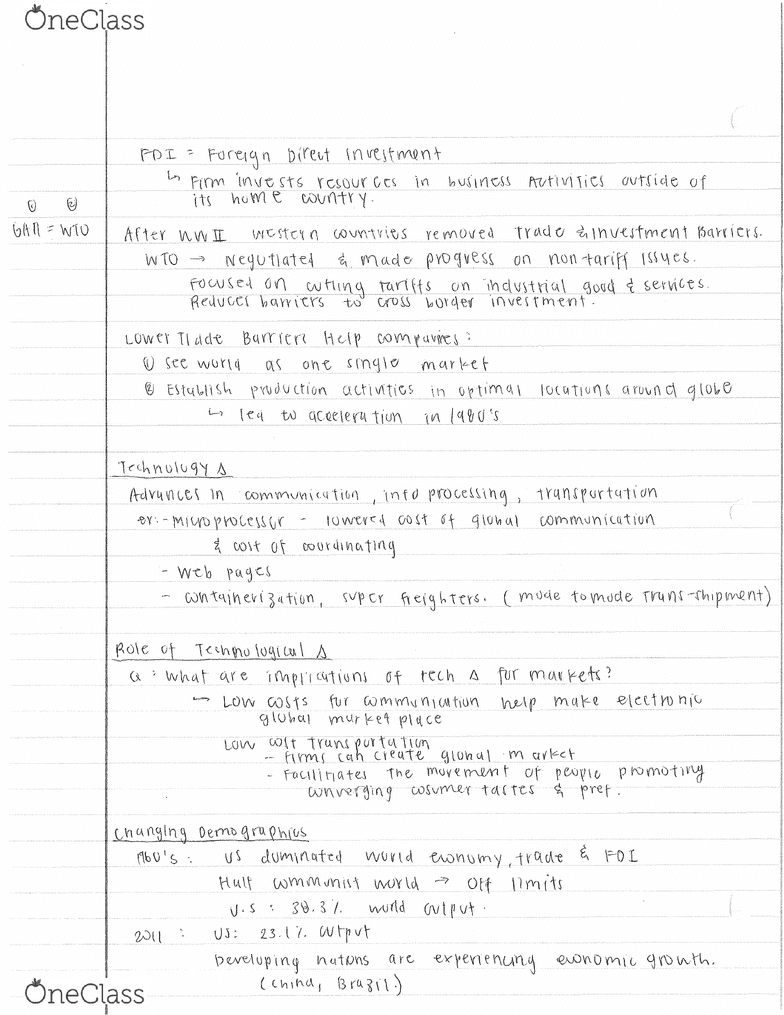 OneClass
FDI = Foreign Direct Investment
↳ Firm invests resources in business Activities outside of
its home country.
① ②
GATT = WTO
After WW II western countries removed Trade & Investment Barriers.
WTO → Negotiated & made progress on non-tariff Issues.
Focused on cutting tariffs on industrial good & services.
Reduces barriers to cross border investment.
Lower Trade Barriers Help companies:
① See world as one single market
② Establish production activities in optimal locations around globe
↳ led to acceleration in 1980's
Technology Δ
Advances in communication, info processing, transportation
ex: - Microprocessor - lowered cost of global communication
& cost of coordinating
- Web pages
- containerization, super freighters. (mode to mode trans-shipment)
Role of Technological Δ
Q: What are implications of tech Δ for markets?
↳ Low costs for communication help make electronic
global market place
Low cost transportation
- Firms can create global market
- Facilitiates the movement of people promoting
converging cosumer tastes & pref.
Changing Demographics
1960's: US dominated world economy, trade & FDI
Half communist world → Off limits
U.S: 38.3% world output.
2011: US: 23.1% output
Developing nations are experiencing economic growth.
(China, Brazil.)
OneClass